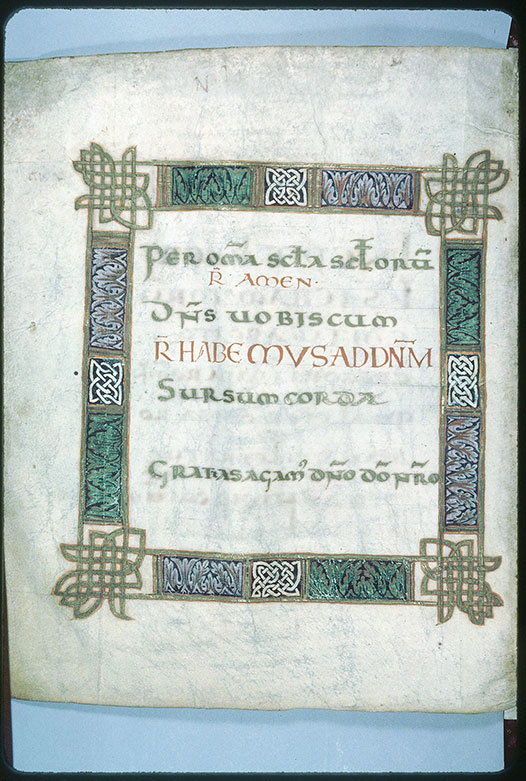 Per om̄a sc̄la sc̄lorū
R̄ AMEN·
Dn̄s uobiscum
R̄ HABEMVS AD DN̄M
Sursum corda
Gratas agam' dn̄o dō nr̄o